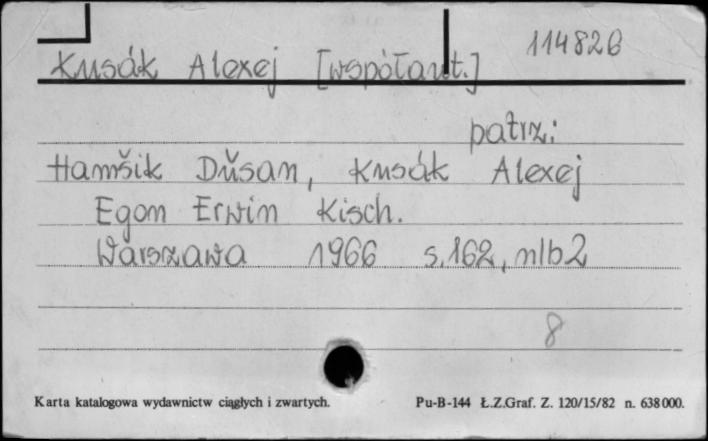 114826
Kusák Alexej [współaut.]
patrz:
Hamšik Dǔsan, Kusák Alexej
Egon Erwin Kisch.
Warszawa 1966 s.162, nlb2
8
Karta katalogowa wydawnictw ciągłych i zwartych. Pu-B-144 Ł.Z.Graf. Z. 120/15/82 n. 638000.